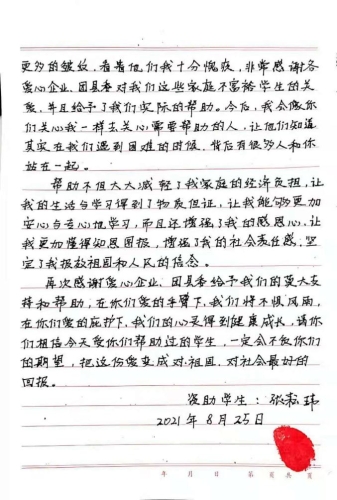 更多的皱纹，看着他们我十分愧疚，非常感谢各
爱心企业、团县委对我们这些家庭不富裕学生的关
爱，并且给予了我们实际的帮助。今后，我会像你
们关心我一样去关心需要帮助的人，让他们知道
其实在我们遇到困难的时候，背后有很多人和你
站在一起。
帮助不但大大减轻了我家庭的经济负担，让
我的生活与学习得到了物质保证，让我能够更加
安心与专心地学习，而且还增强了我的感恩心，让
我更加懂得知恩图报，增强了我的社会责任感，坚
定了我报效祖国和人民的信念。
再次感谢爱心企业、团县委给予我们的莫大支
持和帮助，在你们爱的手臂下，我们将不惧风雨，
在你们爱的庇护下，我们的心灵得到健康成长，请你
们相信今天受你们帮助过的学生，一定会不负你们
的期望，把这份爱变成对祖国、对社会最好的
回报。
资助学生：张
2021年8月25日
年 月 日 第 页 共 页